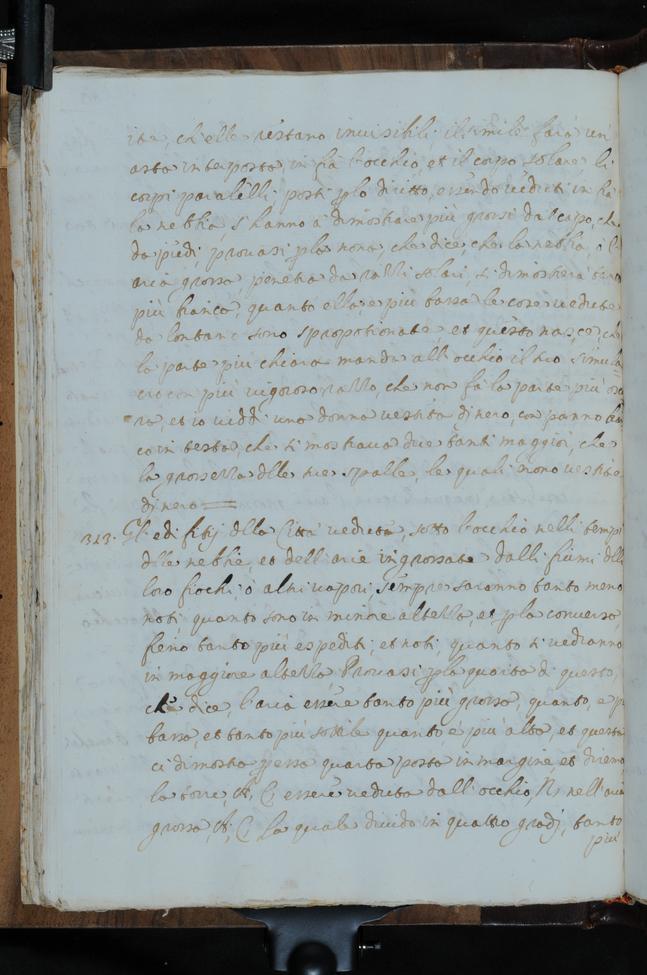 ite, ch'elle restano invisibili, il simile farà un
asta interposta in fra l'occhio, et il corpo solare li
corpi paralelli posti plo diritto, essendo veduti in fra
la nebbia, s'hanno à dimostrare più grossi da capo, che
da piedi, provasi pla nona, che dice, che la nebbia, ò l'
aria grossa penetra da razzi solari, si dimostrerà tanto
più bianca, quanto ella, e più bassa le cose vedute
da lontano sono sproportionate et questo nasce, che
la parte più chiara manda all'occhio il suo simula
cro con più vigoroso razzo, che non fà la parte più oscu
ra, et io viddi una donna vestita di nero, con panno bian
co in testa, che si mostrava due tanti maggior, che
la grossezza dlle sue spalle, le quali erono vestite
di nero
313. Gli edifitij dlla Città veduta, sotto l'occhio nelli tempi
dlle nebbie, et dell'arie ingrossate dalli fiumi dlli
loro fiochi, ò altri vapori sempre saranno tanto meno
noti quanto sono in minore altezza, et pla conversa,
fieno tanto più espediti, et noti, quanto si vedranno
in maggiore altezza Provasi pla quarta di questo,
che dice, l'aria essere tanto più grossa, quanto, e più
bassa, et tanto più sottile quanto, e più alta, et questo
ci dimostra pessa quarta posta in margine et diremo
la torre, A, C, essere veduta dall'occhio, N, nell'aria
grossa, A, C, la quale divido in quattro gradj, tanto
più